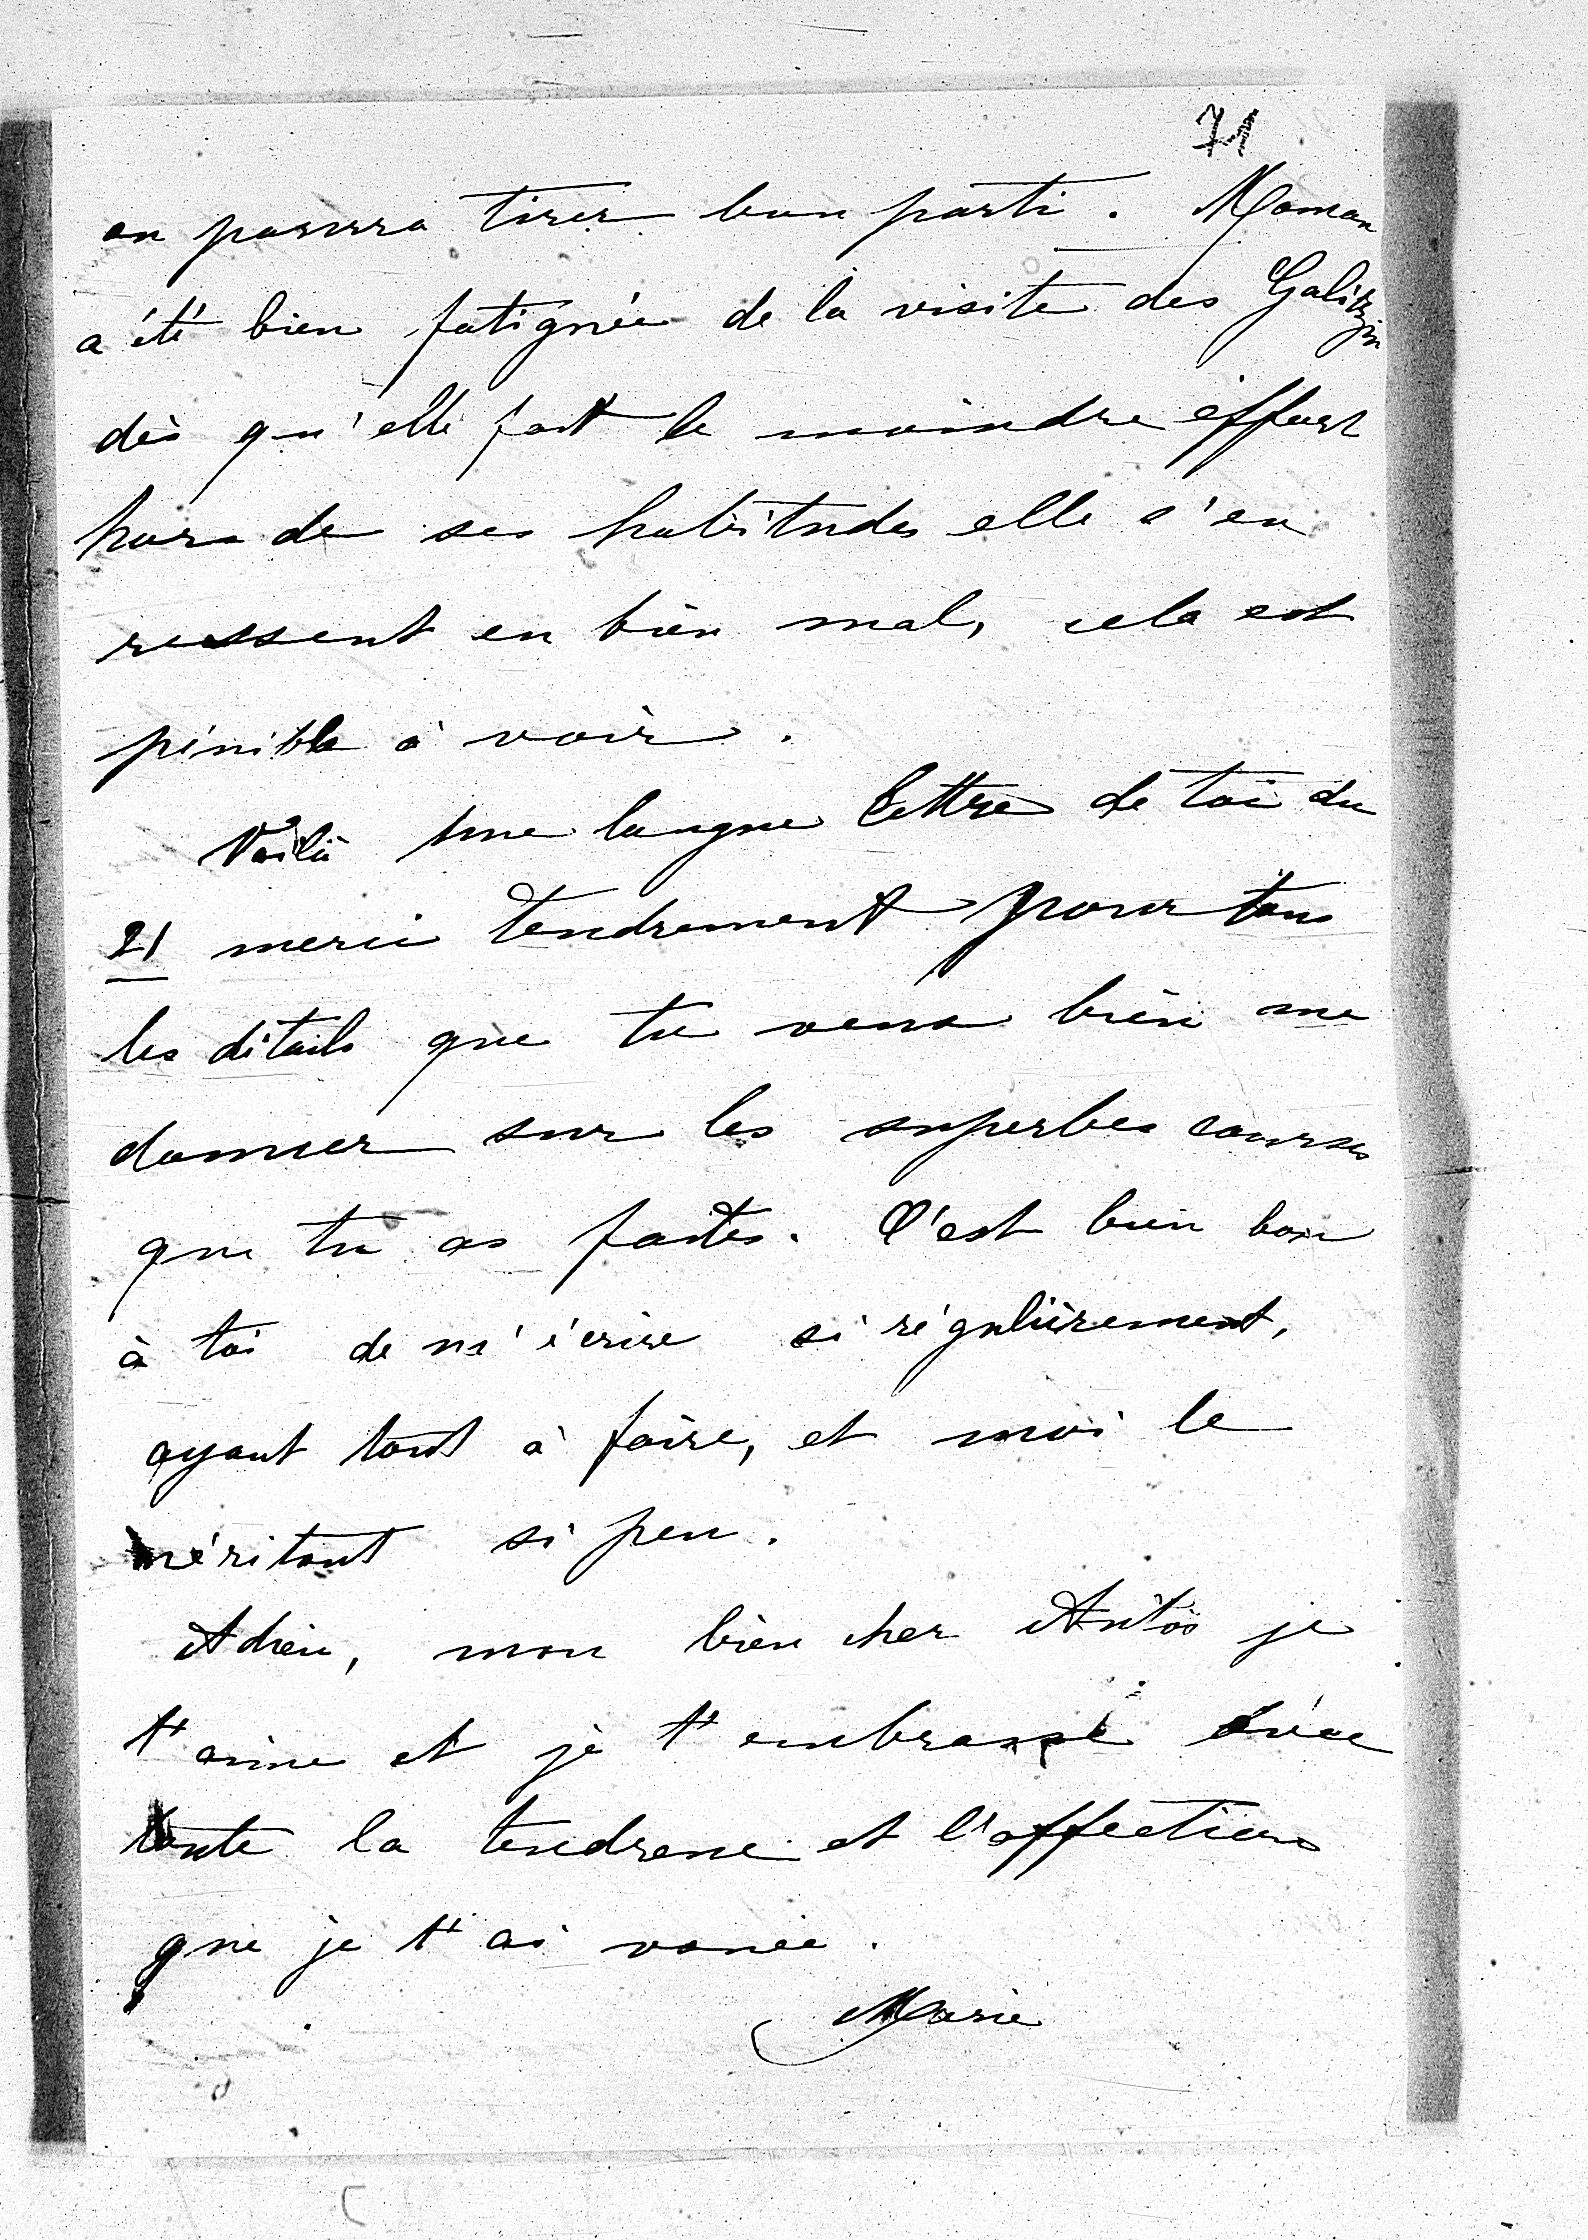 71
on pourra tirer bon parti. Maman
a été bien fatignée de la visite des Galitzin
dès qu'elle fait le moindre effort
hors de ses habitudes elle s'en
ressent en bien mal, cela est
pénible à voir.
Voilà une longue lettre de toi du
21 merci tendrement pour tous
les détails que tu veux bien me
donner sur les superbes courses
que tu as faites. C'est bien bon
à toi de m'écrire si régulièrement,
ayant tant à faire, et moi le
méritant si peu.
Adieu, mon bien cher Antoś je
t'aime et je t'embrasse avec
toute la tendresse et l'affection
que je t'ai vouée.
Marie